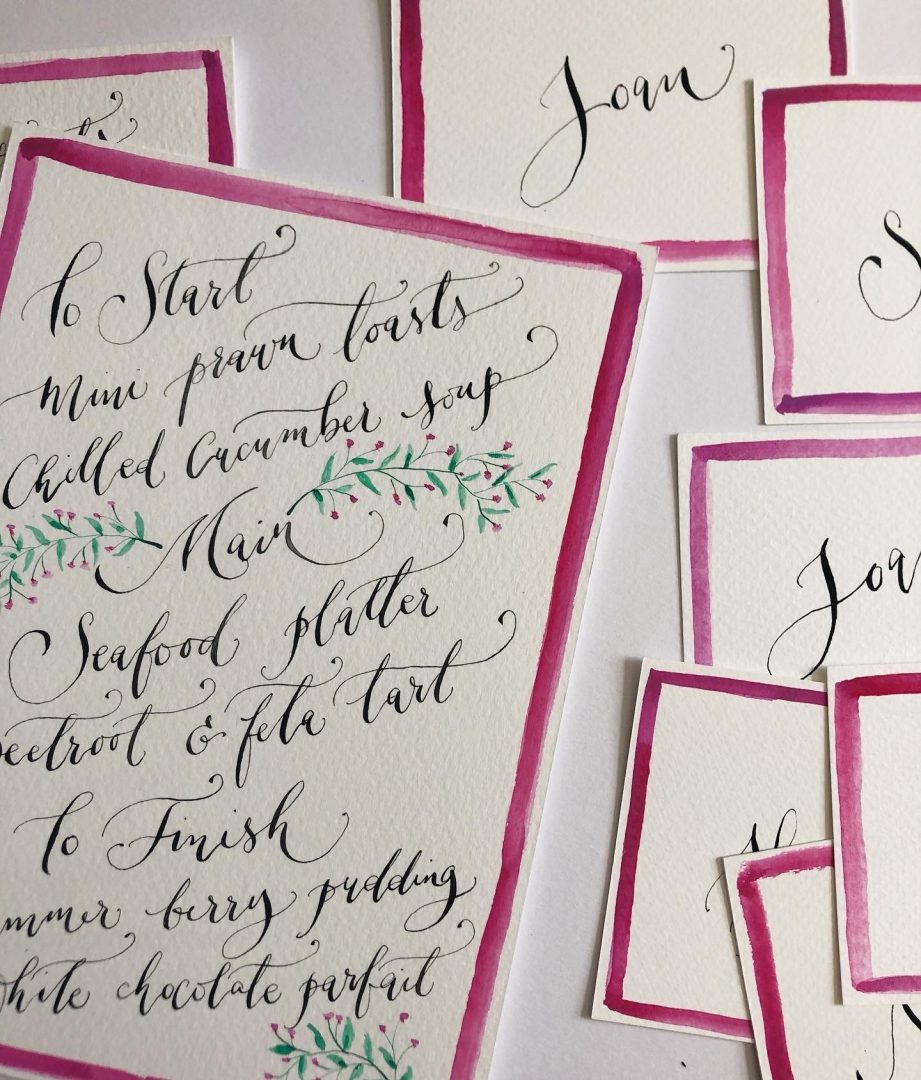 Joan
S
Joa
To Start
Mini prawn toasts
Chilled Cucumber soup
Main
Seafood platter
beetroot & feta tart
To Finish
ummer berry pudding
white chocolate parfait